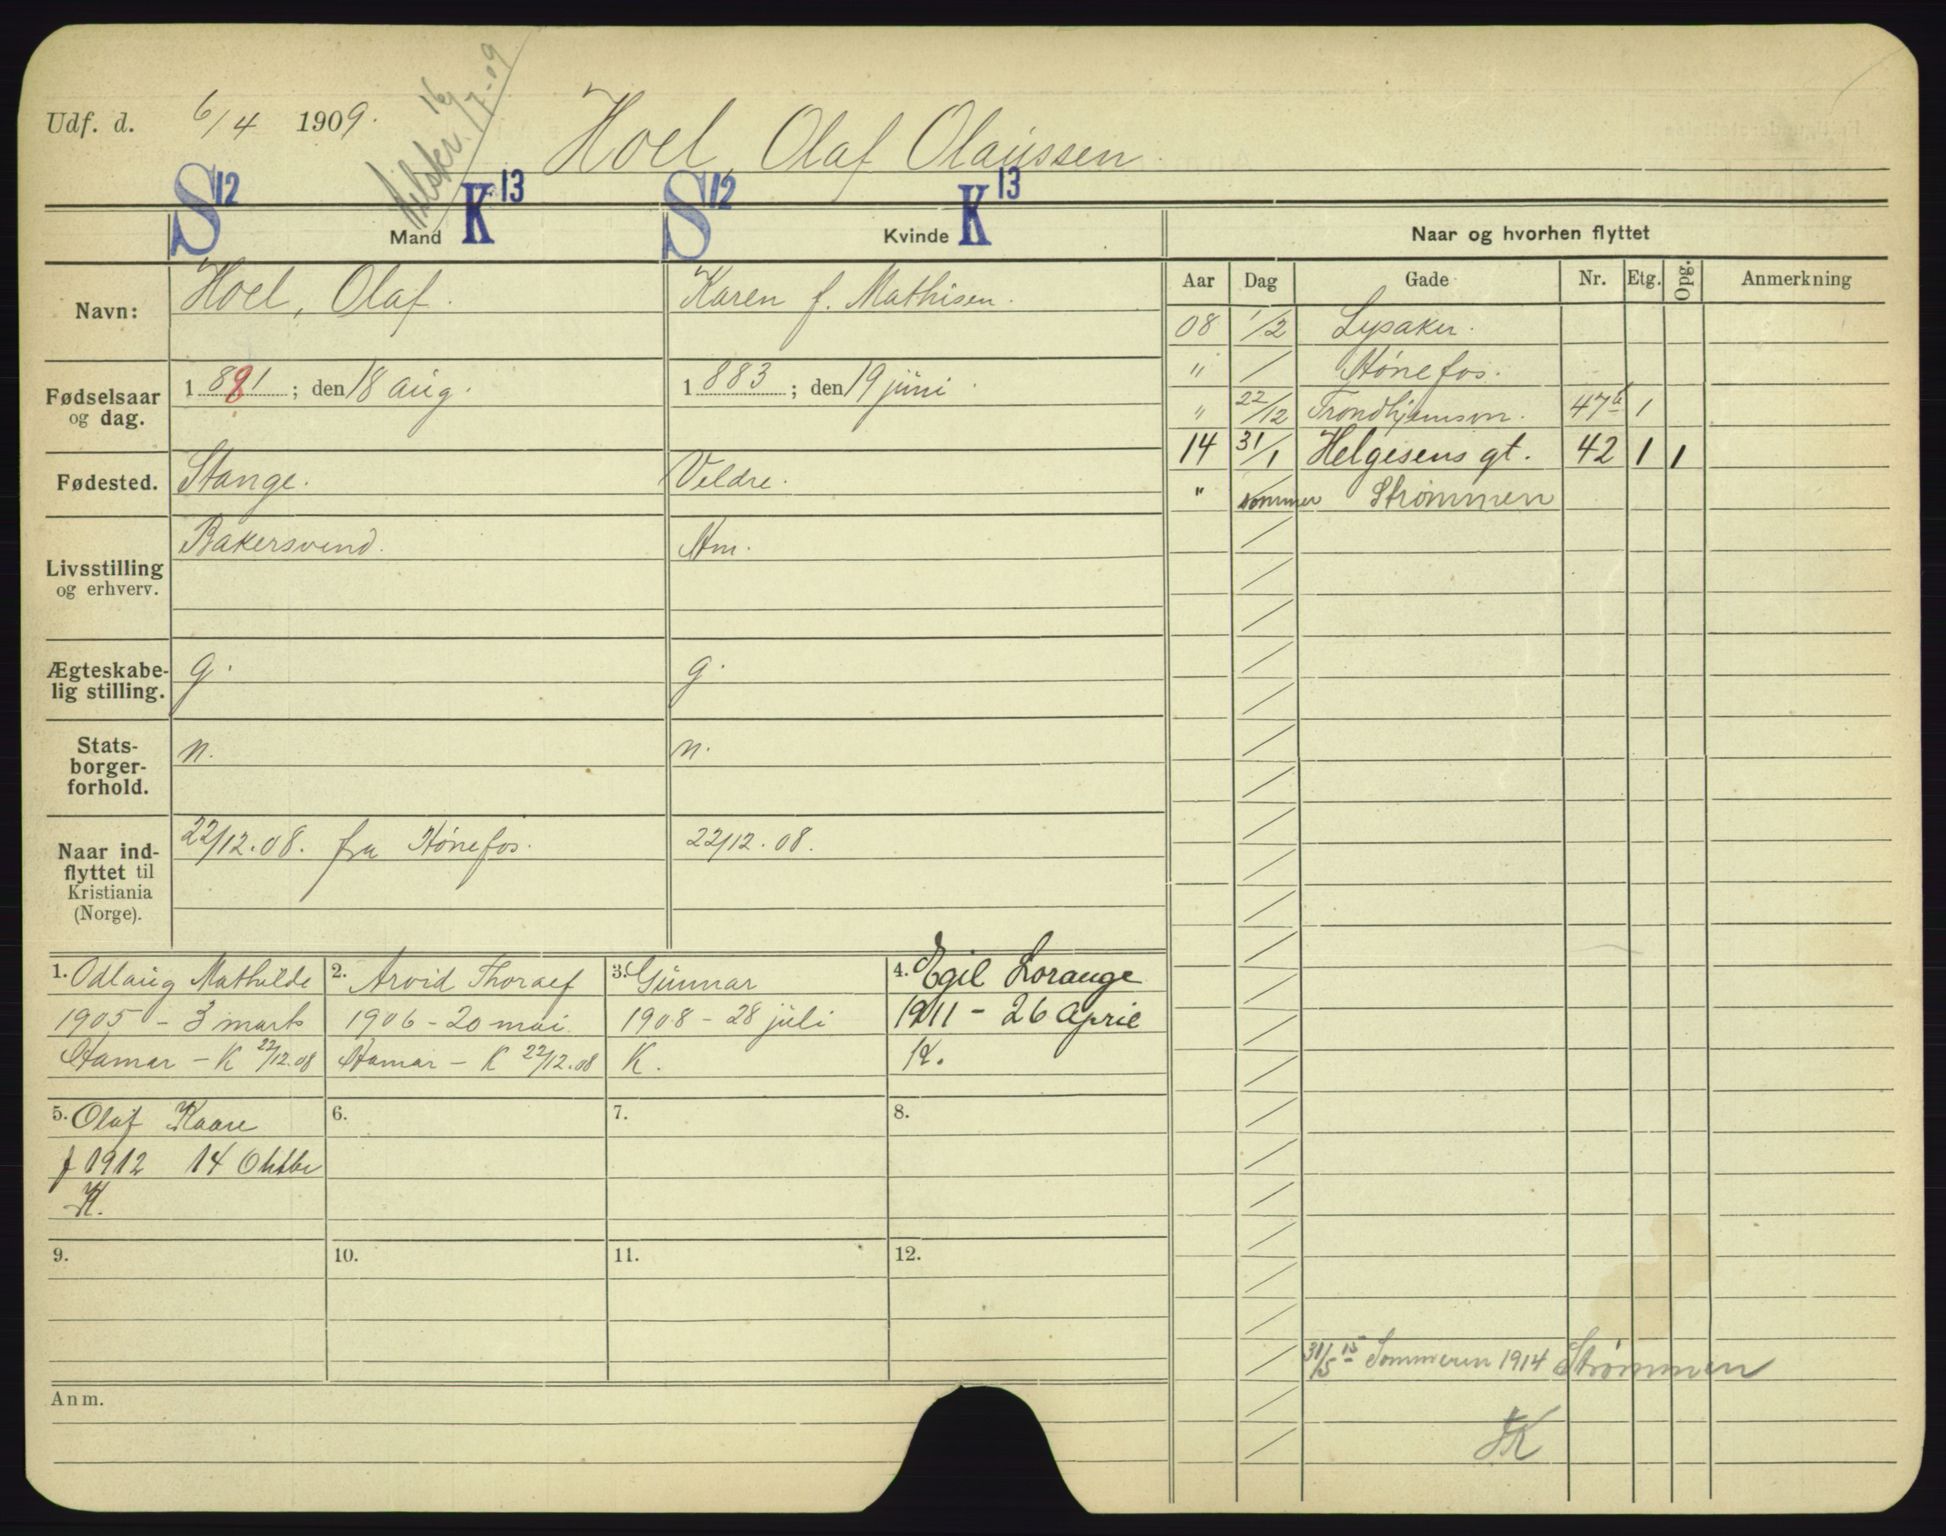 Udf. d. 6/4 1909.
16/7-09
Hoel, Olaf Olaussen.
S 12 K 13 S 12 K 13
Mand Kvinde Naar og hvorhen flyttet
Aar Dag Gade Nr. Etg. Opg. Anmerkning
Navn: Hoel, Olaf. Karen f. Mathisen.
08 1/2 Lysaker.
" / Hønefos.
Fødselsaar
og dag.
1881; den 18 aug. 1883; den 19 juni.
" 22/12 Trondhjemsvn. 47b 1
14 31/1 Helgesens gt. 42 1 1
Fødested. Stange. Veldre.
" sommer Strømmen
Livsstilling
og erhverv.
Bakersvend. Hm.
Ægteskabe-
lig stilling.
g. g.
Stats-
borger-
forhold.
n. n.
Naar ind-
flyttet til
Kristiania
(Norge).
22/12.08. fra Hønefos. 22/12.08.
1. Odlaug Mathilde
1905 - 3 marts
Hamar - K 22/12.08
2. Arvid Thoralf
1906 - 20 mai
Hamar - K 22/12.08
3. Gunnar
1908 - 28 juli
K.
4. Egil Lorange
1911 - 26 April
K.
5. Olaf Kaare
f 1912 14 Oktbr
K.
6.
7.
8.
9.
10.
11.
12.
31/5 15 Sommeren 1914 Strømmen
Anm.